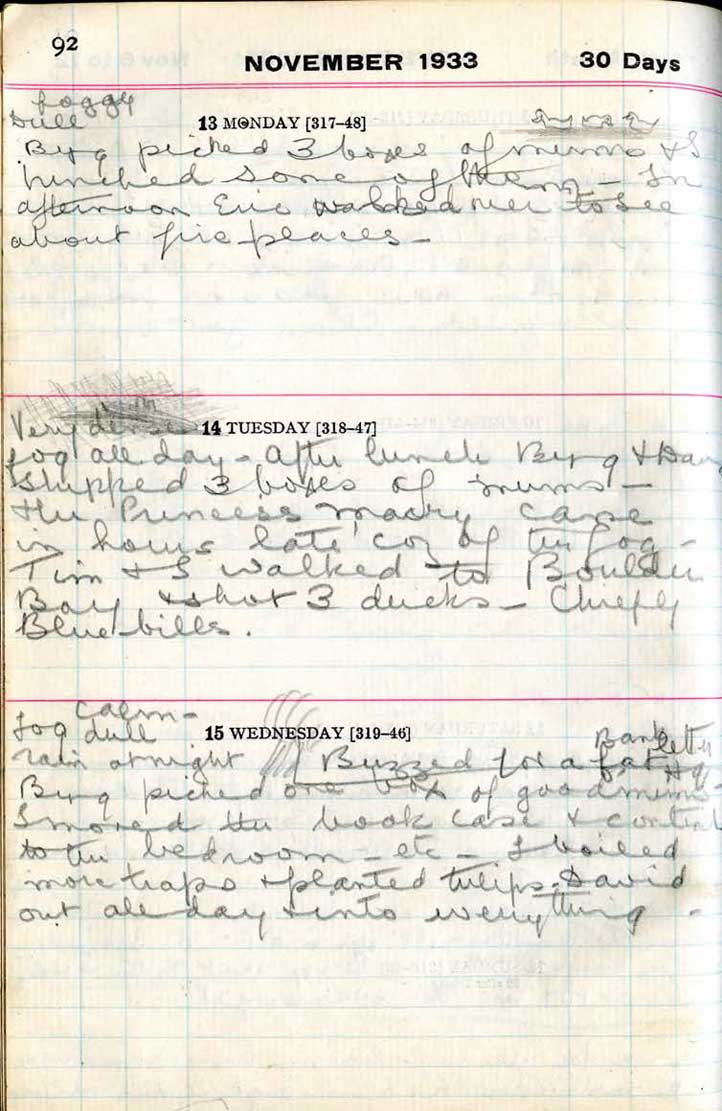 92
NOVEMBER 1933 30 Days
foggy
Dull 13 MONDAY [317–48]
Byrg picked 3 boxes of mums & I
bunched some of them – In
afternoon Eric walked over to see
about fire places –
Very dense 14 TUESDAY [318–47]
fog all day – After lunch Byrg & Dav
shipped 3 boxes of mums –
the Princess Mary came
in hours late coz of the fog –
Tim & I walked to Boulder
Bay & shot 3 ducks – Chiefly
Blue bills.
calm –
Fog dull 15 WEDNESDAY [319–46]
Bank letter
rain at night Buzzed for a fat
Byrg picked one box of good mums
I moved the book case & content
to the bedroom – etc – I boiled
more traps & planted tulips. David
out all day & into everything –